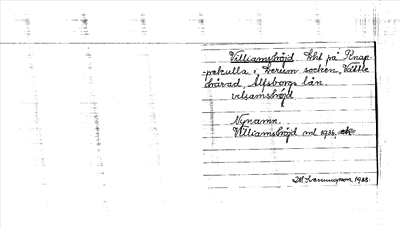 Villiamshöjd, lht på Knap-
pekulla i Herum socken, Valle
härad, Älfsborgs län.
vilsamshöjd.
Nynamn.
Villiamshöjd ml 1936,
1938.